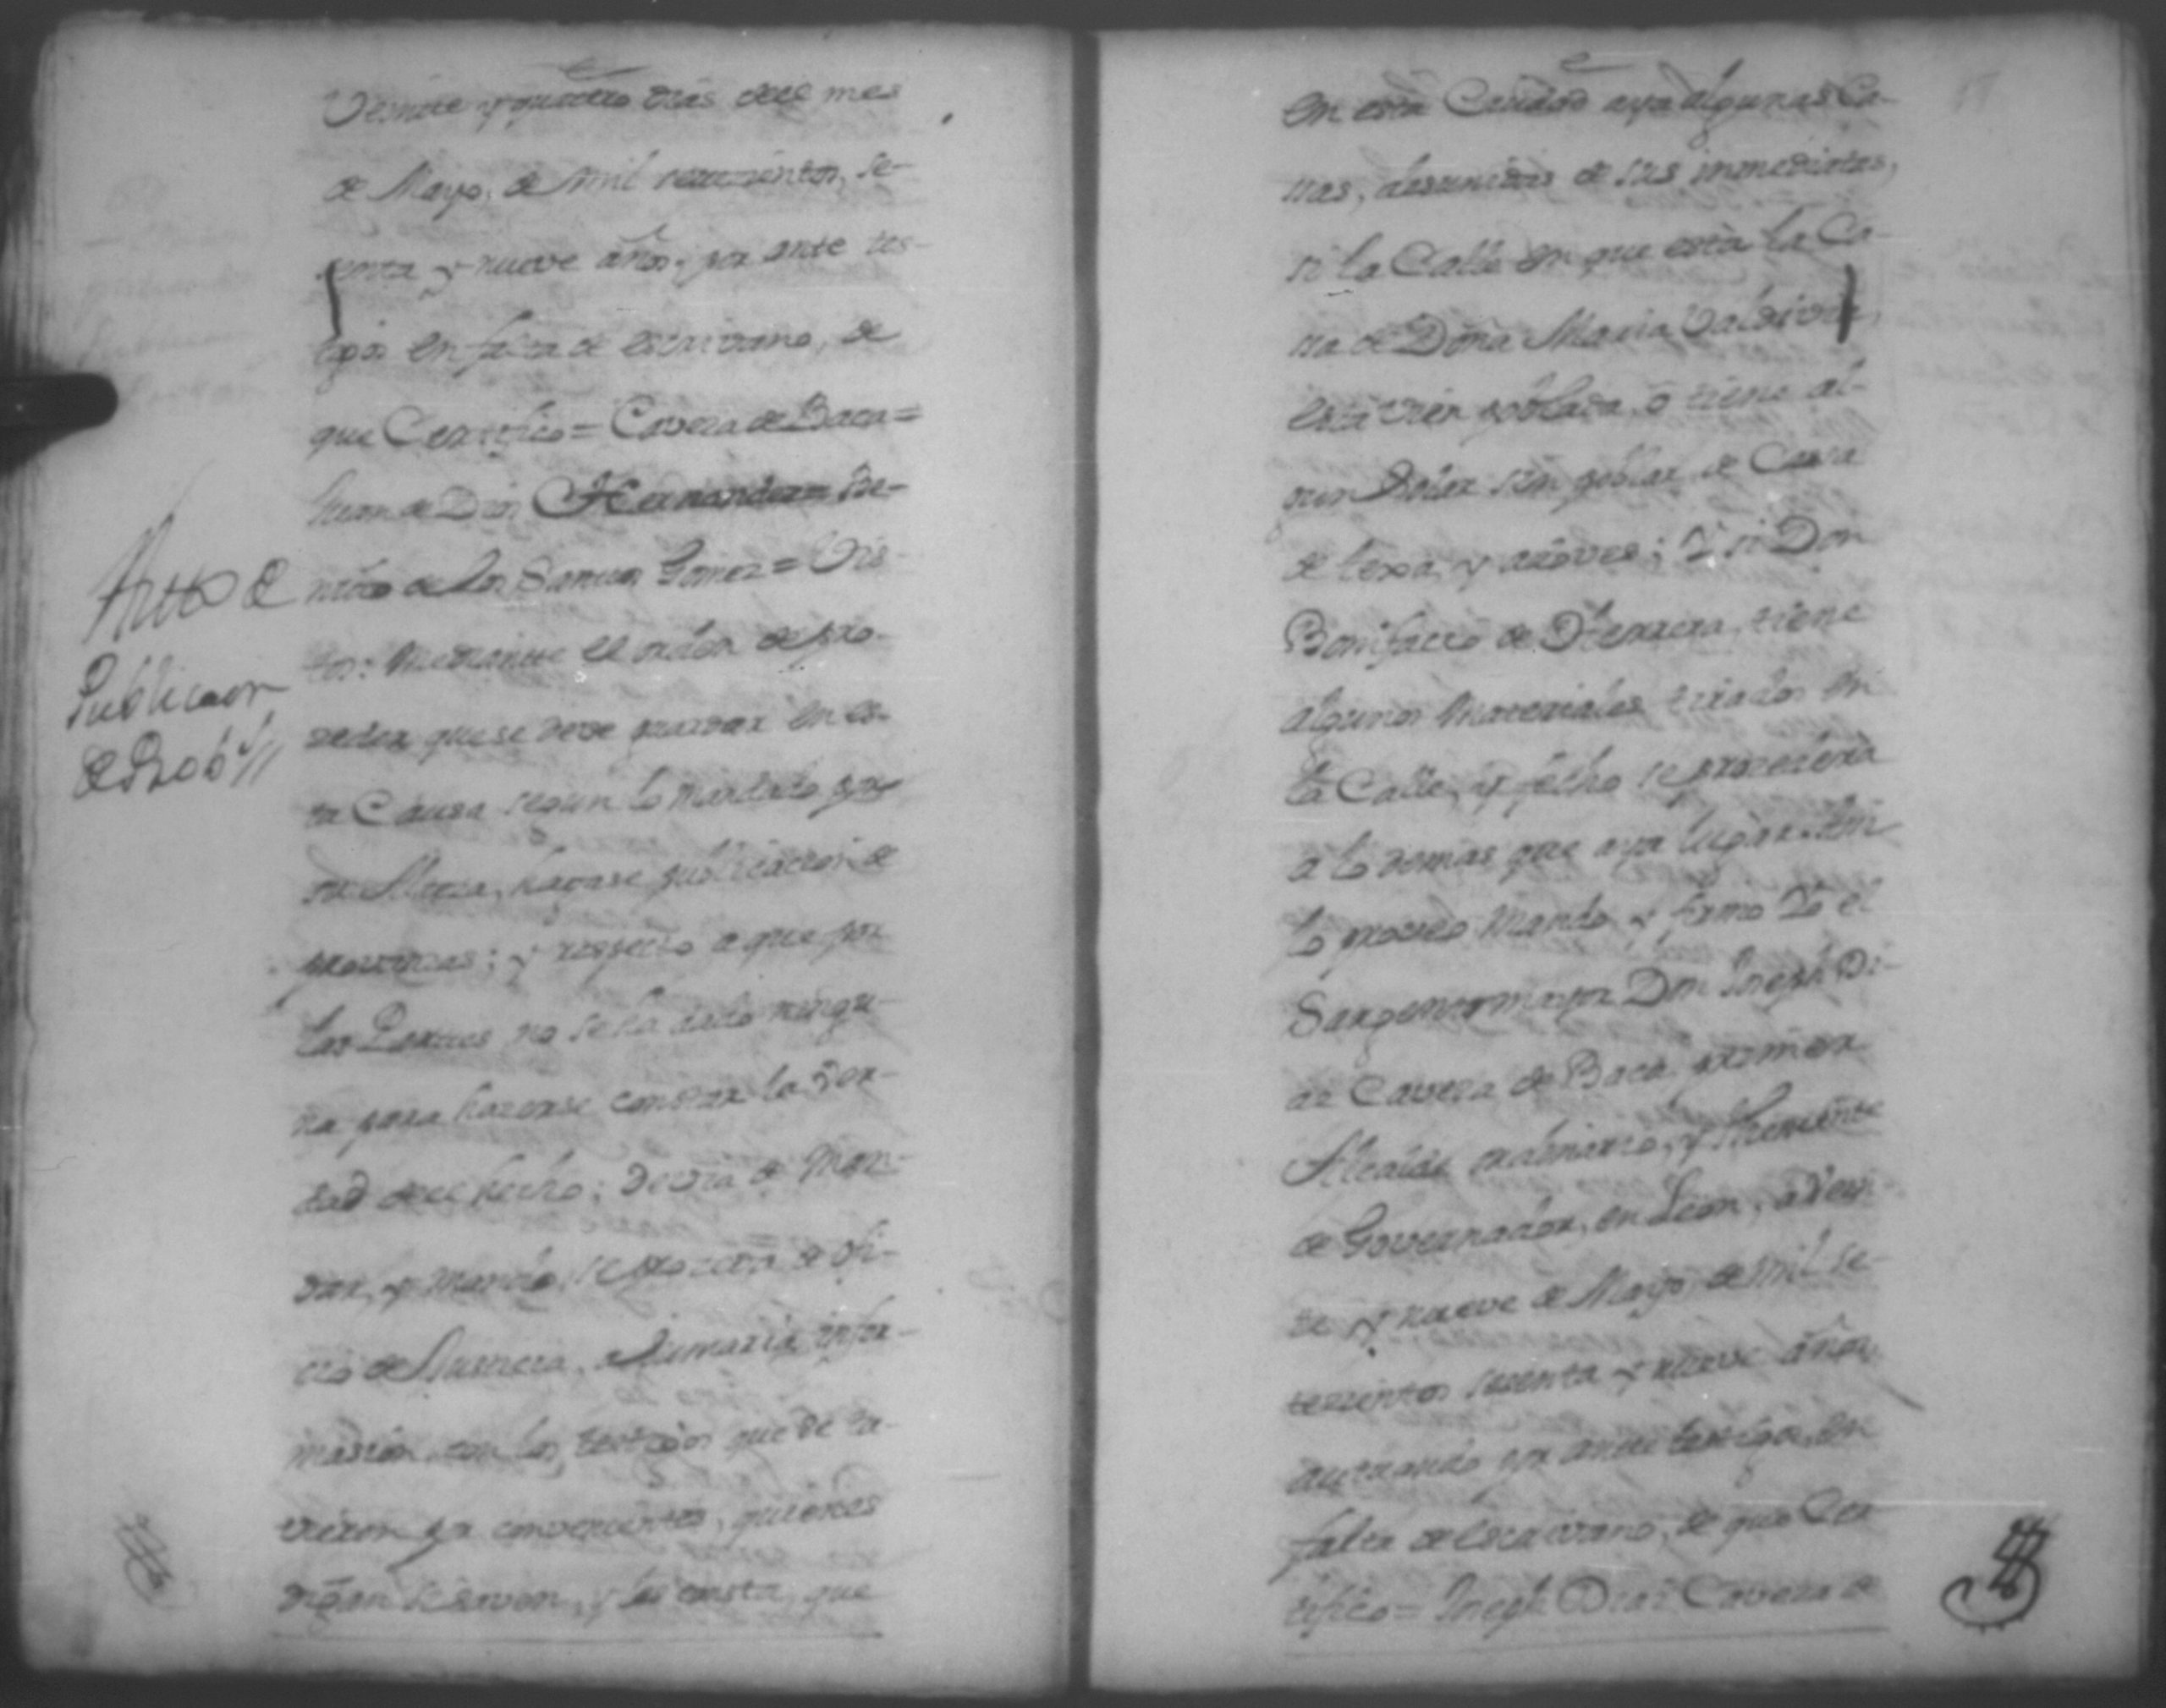 Veinte y quatro dias de el mes
de Mayo, de mil setezientos, se-
senta y nueve años. por ante tes-
tigos en falta de escrivano, de
que Certifico = Caveza de Baca =
Juan de Dios Hernandez = Be-
nito de los Santos Gomez = Vis-
tos: Mediante el orden de pro-
zeder que se deve guardar en es-
ta Causa segun lo mandado por
su Alteza, hagase publicacion de
provanzas; y respecto a que por
las Partes no se ha dado ningu-
na para hazerse constar la ver-
dad de el hecho; devia de Man-
dar, y mando, se prozeda de ofi-
cio de Justicia, a sumaria infor-
mazion con los testigos que se tu-
vieren por convenientes, quienes
digan si saven, y les consta, que
Autto de
Publicaon
de Prob.s
en esta Ciudad aya algunas Ca-
sas, desunidas de sus inmediatas,
si la Calle en que està la Ca-
sa de Doña Maria Valdivia,
està vien poblada, ò tiene al-
gun solar sin poblar de Casa
de texa, y adoves; Y si Don
Bonifacio de Herrera, tiene
algunos Materiales tirados en
la Calle, y fecho se prozederà
a lo demas que aya lugar. Assi
lo proveo Mando y firmo Yo el
Sargento mayor Don Joseph Di-
az Caveza de Baca primer
Alcalde ordinario, y Theniente
de Governador, en Leon, a Vein-
te y nueve de Mayo, de mil se-
tezientos sesenta y nueve años,
actuando por ante testigos, en
falta de escrivano, de que Cer-
tifico = Joseph Diaz Caveza de